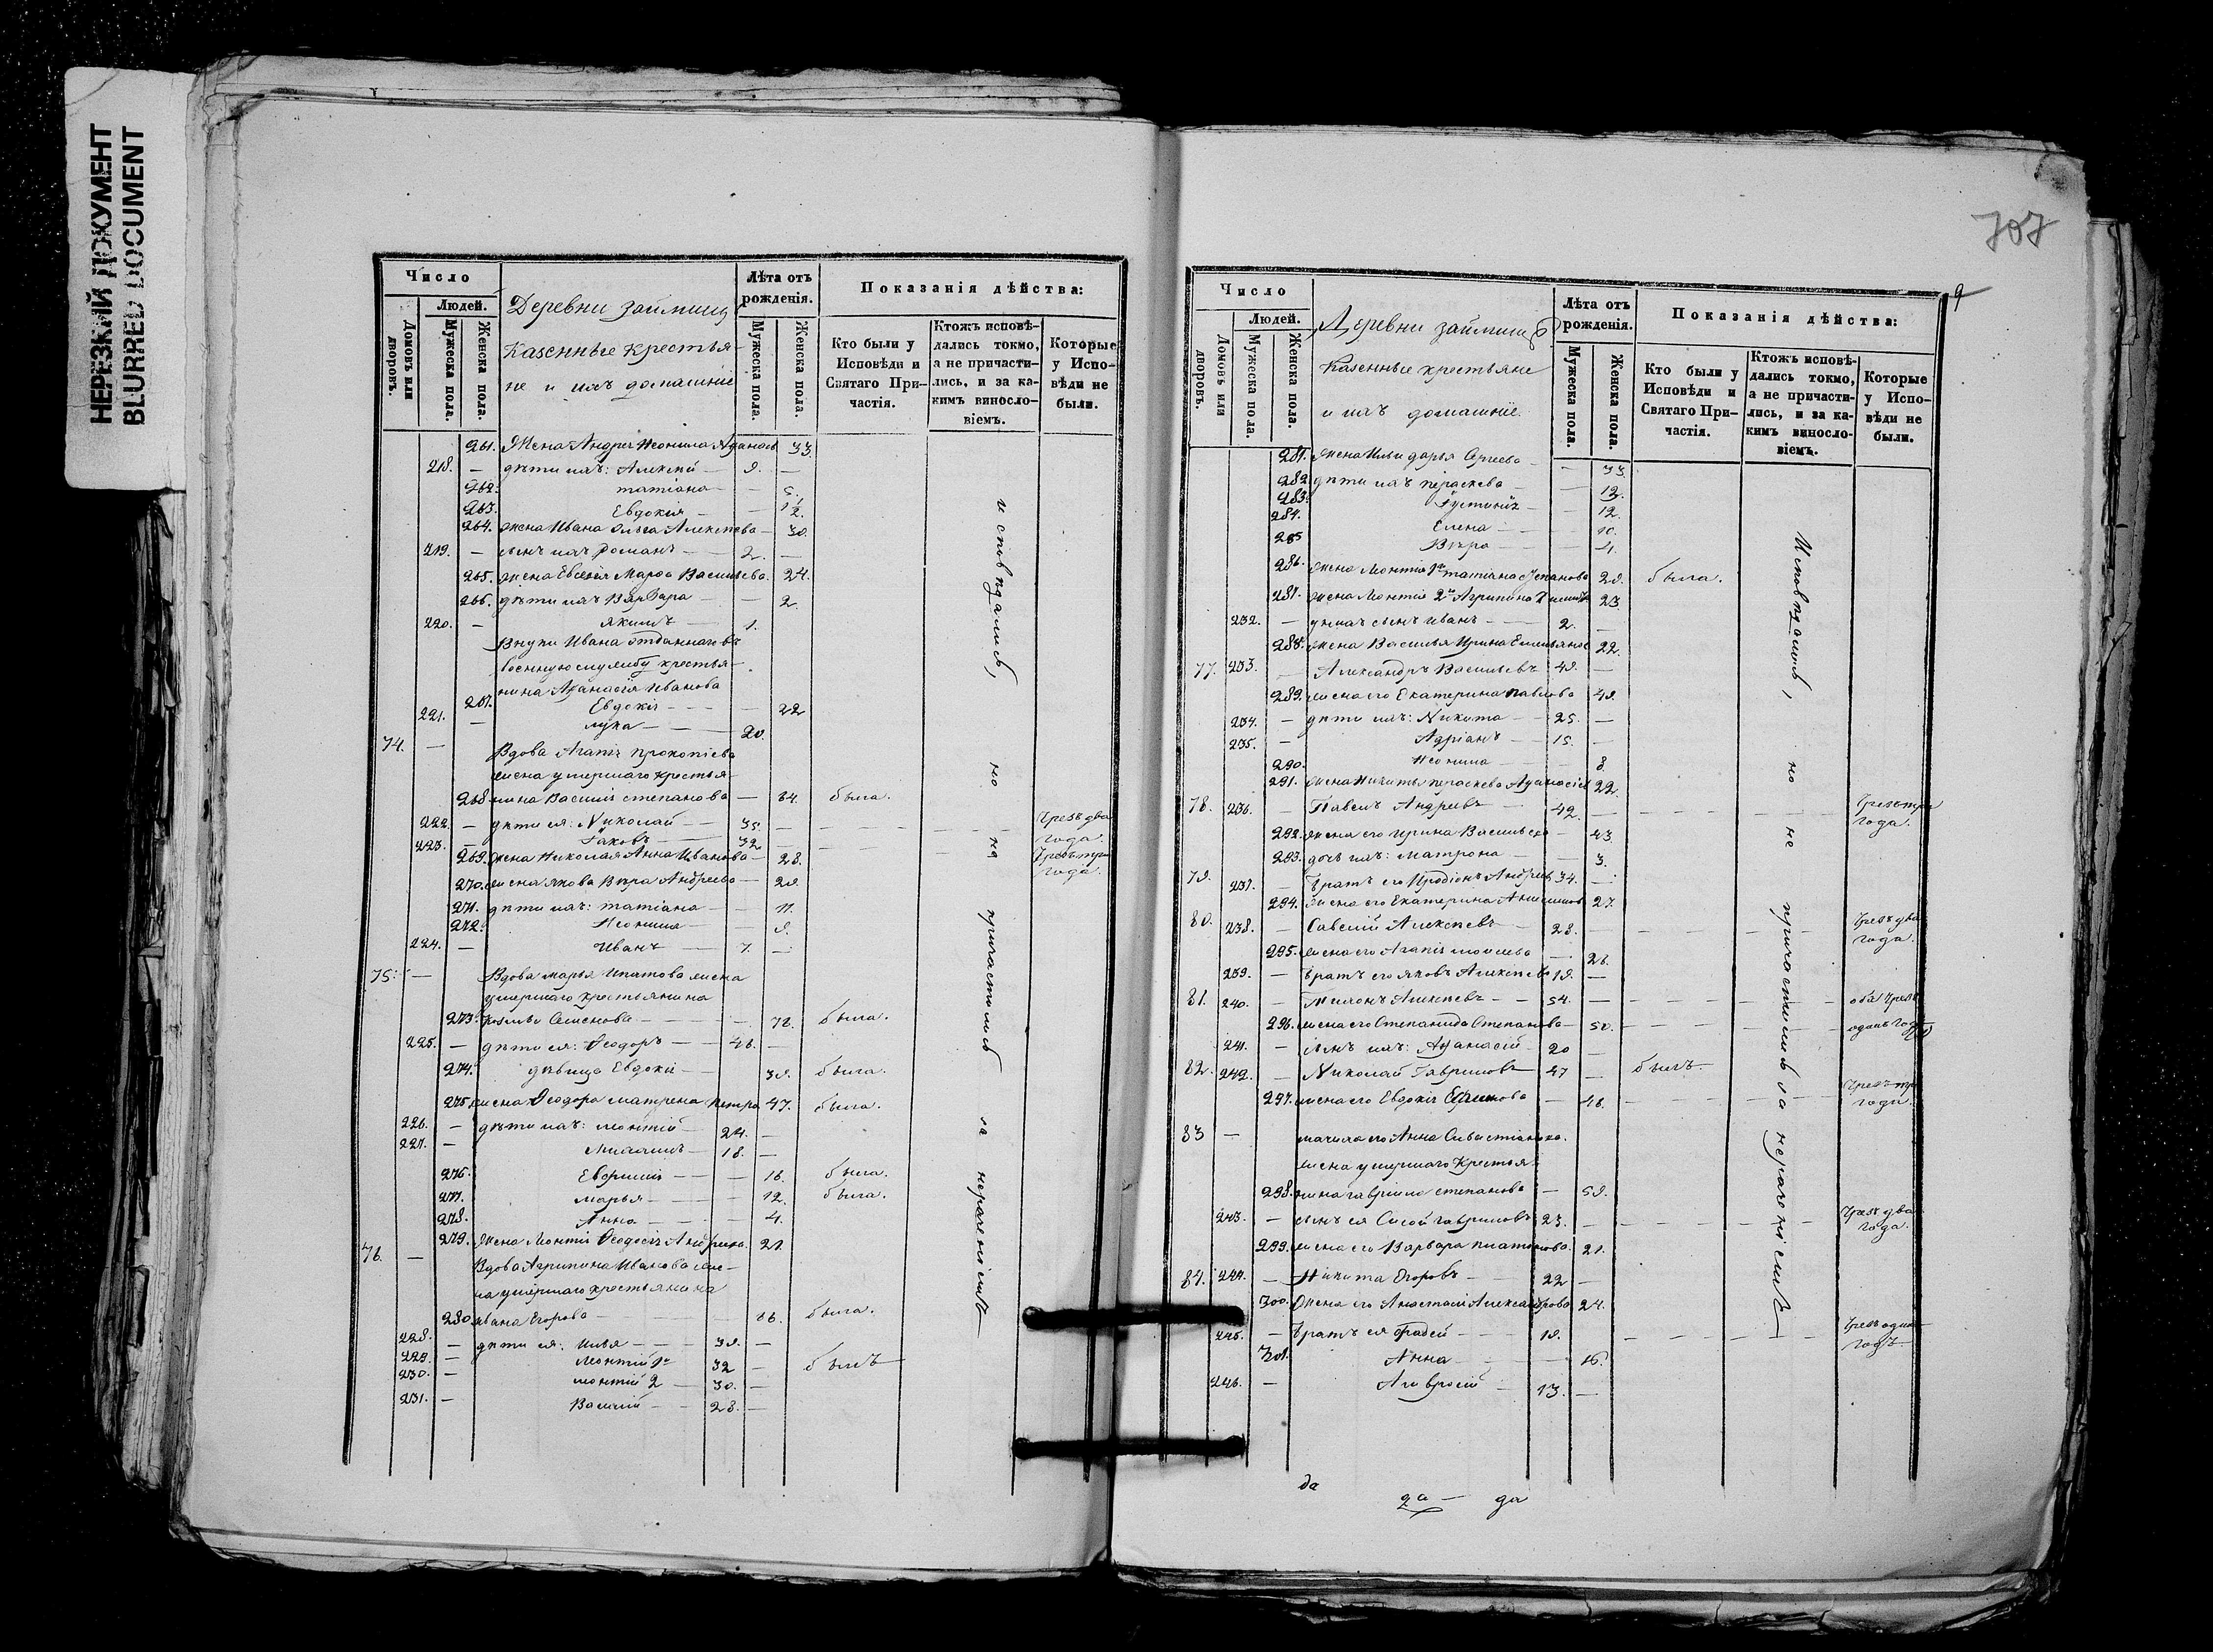 НЕРЕЗКИЙ ДОКУМЕНТ
BLURRED DOCUMENT
Число
Людей.
Домовъ или дворовъ.
Мужеска пола.
Женска пола.
Деревни Займищ
Казенные крестья-
не и ихъ домашніе
Лѣта отъ рожденія.
Мужеска пола.
Женска пола.
Показанія дѣйства:
Кто были у Исповѣди и Святаго Причастія.
Ктожъ исповѣдались токмо, а не причастились, и за какимъ винословіемъ.
Которые у Исповѣди не были.
261. Жена Андрея Неонила 33.
218. — дѣти ихъ: Алексѣй — 9. —
262. татіана — — 5.
263. Евдокія — —
264. жена Ивана Ольга Алексѣева — 30.
219. — сынъ ихъ Романъ — 2. —
265. жена Евсевія Марѳа Васильева. 24.
266. дѣти ихъ Варвара — — 2.
220. — якимъ — 1.
Внуки Ивана отданнаго въ
военную службу крестья-
нина Аѳанасія Иванова
267. Евдокія — — — 22
221. — лука — — 20.
74. — Вдова Агапія Прокопіева
жена умершаго крестья-
268 нина Василія степанова — 64. была.
222. — дѣти ея: Николай — 35. — Чрезъ два года.
223. — Іаковъ — 32 — Чрезъ три года.
269. жена Николая Анна Иванова — 28.
270. жена якова Вѣра Андреева — 29.
271. дѣти ихъ: татіана — — 11.
272. Неонила — — 9.
224. — Иванъ — 7. —
75. — Вдова марья Ипатова жена
умершаго крестьянина
273. Козьмы Семенова — — — 72. была.
225. — дѣти ея: Ѳеодоръ — — 46. —
274. дѣвица Евдокія — — 39. была.
275. жена Ѳеодора матрена Петро 47. была.
226. — дѣти ихъ: леонтій — 24. —
227. — Михаилъ — 18. —
276. Евфимія — — — 16. была.
277. марья — — — 12. была.
278. Анна — — — 4.
279. Жена Леонтія Ѳеодосія Андреева. 21.
76. — Вдова Агрипина Иванова же-
на умершаго крестьянина
280. Ивана Егорова — — 66. была.
228. — дѣти ея: Илья — — 39. —
229. — Леонтій 1й 32 — былъ
230. — леонтій 2 — 30. —
231. — Василій — — 28. —
исповѣдались, но не причастились за нераченіемъ
707
9
Число
Людей.
Домовъ или дворовъ.
Мужеска пола.
Женска пола.
Деревни займищ
Казенные крестьяне
и ихъ домашніе.
Лѣта отъ рожденія.
Мужеска пола.
Женска пола.
Показанія дѣйства:
Кто были у Исповѣди и Святаго Причастія.
Ктожъ исповѣдались токмо, а не причастились, и за какимъ винословіемъ.
Которые у Исповѣди не были.
281. жена Ильи дарья Сергеева — — 33.
282. дѣти ихъ параскева — — 12.
283. Іустинія — — 12.
284. Елена — — 10.
285 Вѣра — — 4.
286. жена Леонтія 1го татіана Степанова 29. была.
287. жена Леонтія 2го Агрипина 23.
232. — у нихъ сынъ иванъ — 2. —
288. жена Василья Ирина Емельянов 22.
77. 233. — Александръ Васильевъ 49. —
289. жена его Екатерина Павлова 49.
234. — дѣти ихъ: Никита — 25. —
235. — Адріанъ — 15. —
290. Неонила — — 8.
291. жена Никиты параскева Аѳанасіев 22.
78. 236. — Павелъ Андреевъ — 42. — Чрезъ три года.
292. жена его ирина Васильева — 43.
293. дочь ихъ: матрона — — 3.
79. 237. — братъ его Иродіонъ Андреев 34. —
294. жена его Екатерина 27.
80. 238. — Савелій Алексѣевъ — 28. Чрезъ два года.
295. жена его Агапія моисеева — 26.
239. — братъ его яковъ Алексѣев 19. —
81. 240. — Тимонъ Алексѣевъ — — 54. — оба чрезъ
296. жена его Степанида Степанова — 50. одинъ годъ
241. — сынъ ихъ: Аѳанасій — 20 —
82. 242. — Николай Гавриловъ — 47 — былъ
297. жена его Евдокія — 46. Чрезъ три года.
83 — мачиха его Анна Сивастіанова.
жена умершаго Крестья-
298. нина гавріила степанова — 59.
243. — сынъ ея Сысой гавриловъ 23. — Чрезъ два года.
299. жена его Варвара платонова. 21.
84. 244. — Никита Егоровъ — 22 —
300. Жена его Анастасія Александрова 24.
245. — братъ ея Фадей — — 19. Чрезъ одинъ годъ.
301. Анна — — 16.
246. — Амвросій — 13. —
Исповѣдались, но не причастились за нераченіемъ
да да — да